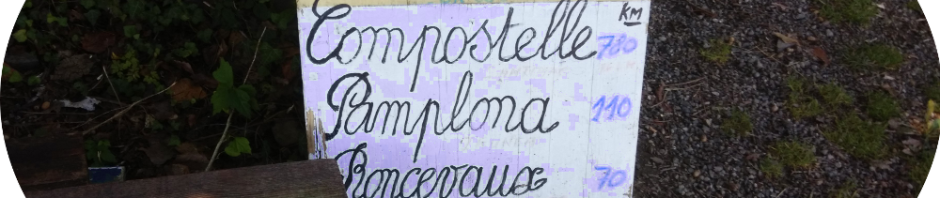 KM
Compostelle 780
Pamplona 110
Roncevaux 70